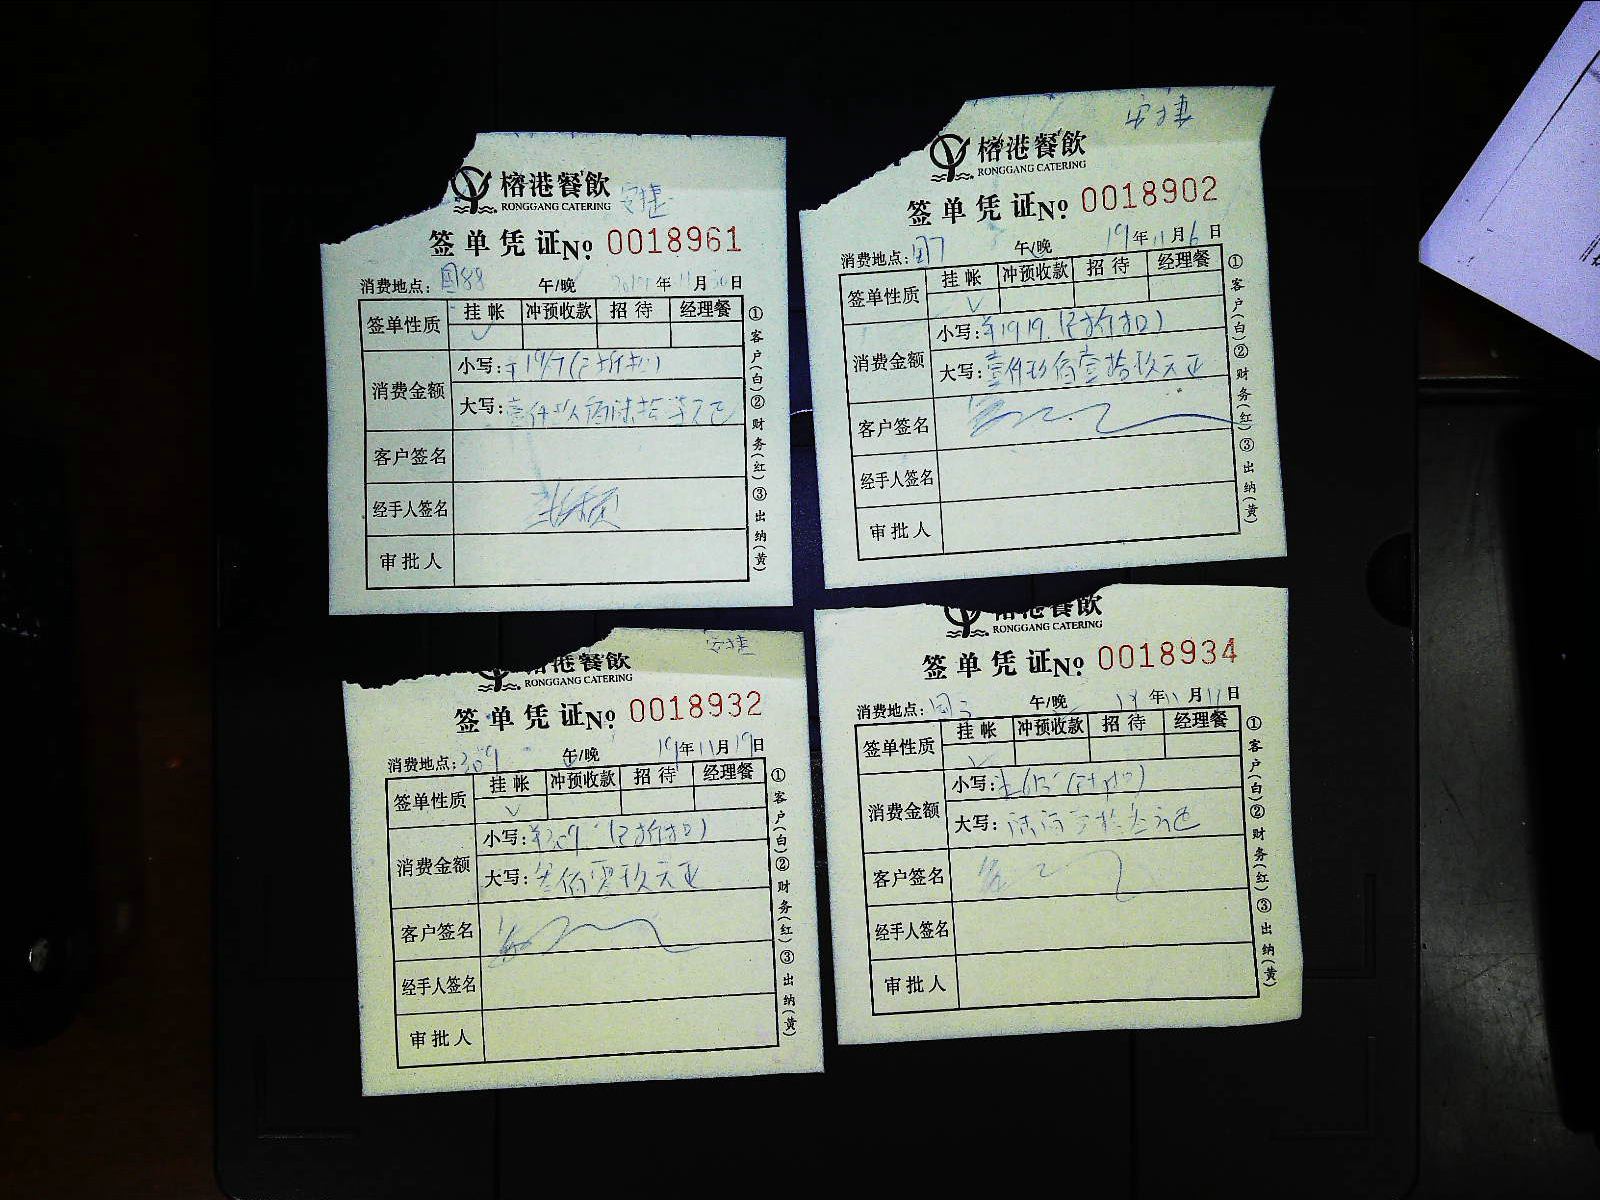 榕港餐飲 安捷
RONGGANG CATERING
签单凭证№ 0018961
消费地点: 国88 午/晚 2019年11月30日
签单性质 挂帐 冲预收款 招待 经理餐
√
消费金额 小写: (已折扣)
大写:
客户签名
经手人签名
审批人
①客户(白)②财务(红)③出纳(黄)
安捷
榕港餐飲
RONGGANG CATERING
签单凭证№ 0018902
消费地点: 午/晚 19年11月6日
签单性质 挂帐 冲预收款 招待 经理餐
√
消费金额 小写:¥1919.(已折扣)
大写:壹仟玖佰壹拾玖元正
客户签名
经手人签名
审批人
①客户(白)②财务(红)③出纳(黄)
安捷
榕港餐飲
RONGGANG CATERING
签单凭证№ 0018932
消费地点:309 午/晚 19年11月19日
签单性质 挂帐 冲预收款 招待 经理餐
√
消费金额 小写:¥309.(已折扣)
大写:叁佰零玖元正
客户签名
经手人签名
审批人
①客户(白)②财务(红)③出纳(黄)
榕港餐飲
RONGGANG CATERING
签单凭证№ 0018934
消费地点: 午/晚 19年11月11日
签单性质 挂帐 冲预收款 招待 经理餐
√
消费金额 小写: (已折扣)
大写:
客户签名
经手人签名
审批人
①客户(白)②财务(红)③出纳(黄)